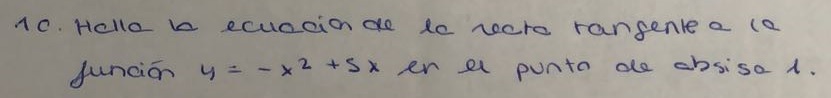 10. Halla la ecuación de la recta tangente a la
función y = -x² + 5x en el punto de absisa 1.